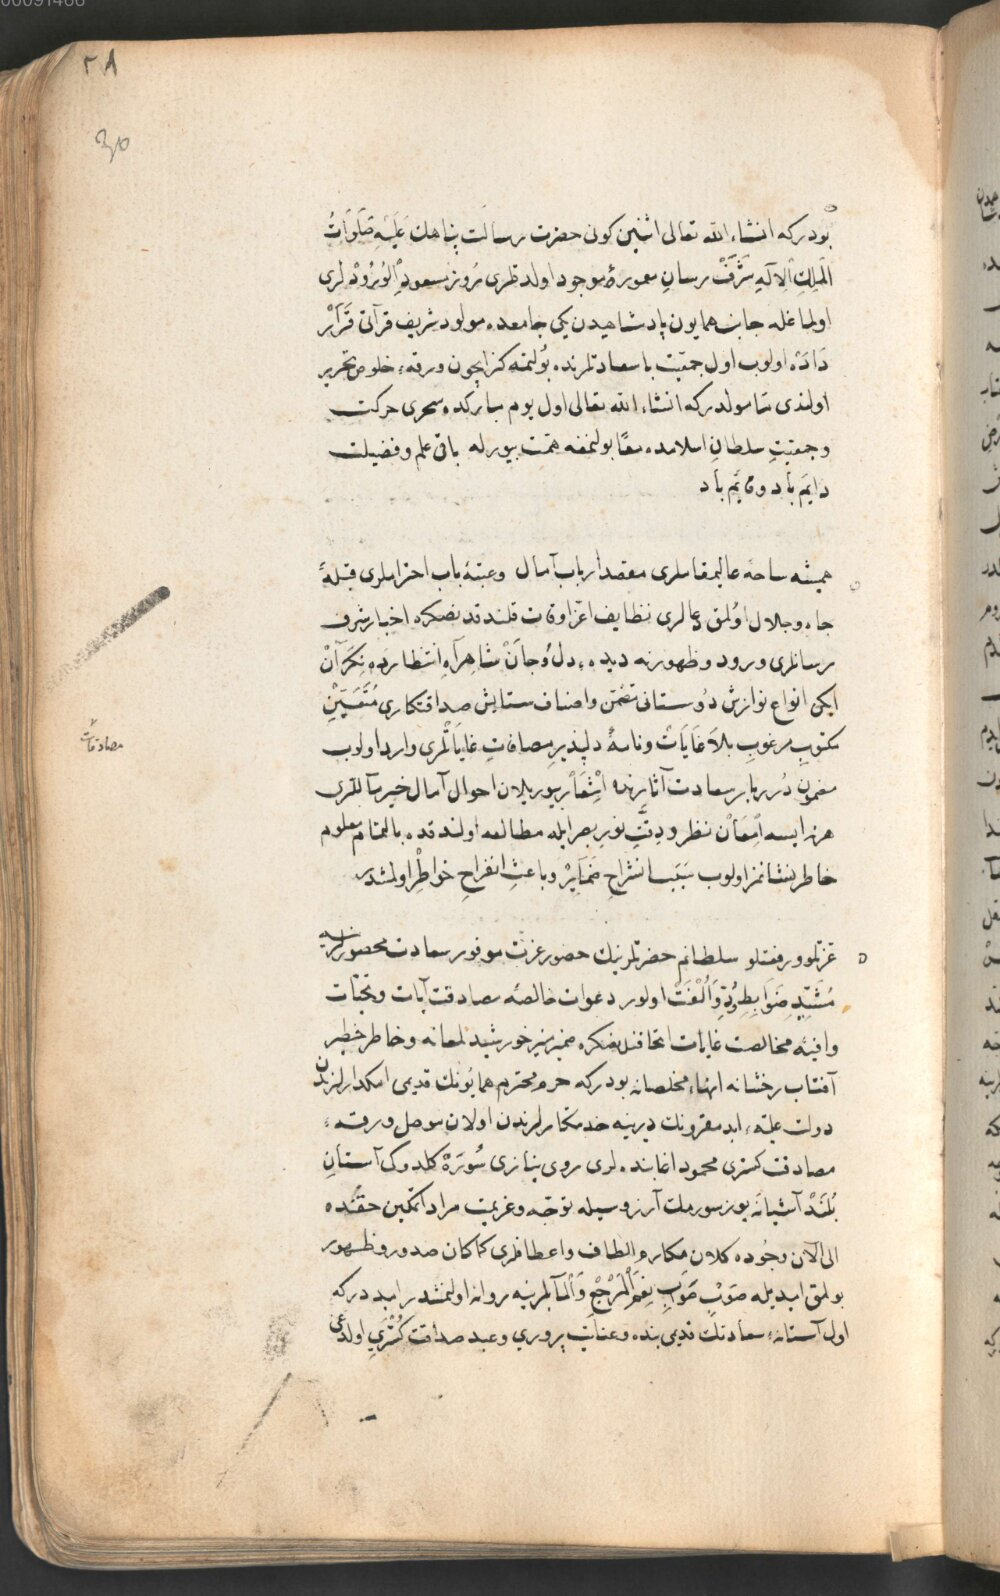 00091466
٢٨
30
بودركه انشاء الله تعالى اثنين كونى حضرت رسالت پناهك عَلَيْهِ صَلَوَاتُ
الْمَلِكِ الْاِلٰهِ شَرَفْ رسانِ معمورهٔ موجود اولدقلرى روز مسعودِ الْوُرُودْلرى
اولماغله جانب همايون پادشاهيدن يكى جامعده مولود شريف قرآتى قَرَارْ
دَادَه اولوب اول جمعيّت باسعادتلرنده بولنمه كز ايچون ورقهٔ خلوص تحرير
اولندى مأمولدركه انشاء الله تعالى اول يوم مباركده سحرى حركت
و جمعيّتِ سلطانِ اسلامده معًا بولنمغه همّت بيورله باقى علم و فضيلت
دَايَم بَاد و قايَم بَاد
هميشه ساحهٔ عاليمقاملرى مقصد ارباب آمال وعتبهٔ باب احتراملرى قبلهٔ
جاه و جلال اولمق دعالرى نظايف اعزّ اوقات قلندقدنصكره اخبار شرف
رسانلرى ورود و ظهورينه ديدهٔ دل وُجان شاهراهِ انتظارده نِكَرَانْ
ايكن انواع نوازش دوستانى متضمّن واصناف ستايش صداقتكارى مُتَعَيِّنِ
مكتوبِ مرغوبِ بلاغَايَاتْ ونامهٔ دلپذيرِ مصافاتِ غاياتلرى وارد اولوب
مضمون دُررْبارِ سعادت آثارنده اِشْعَارْ بيوريلان احوال آمال خير مآللرى
هر نه ايسه اِمْعَانْ نظر ودِقّتِ نورِ بصر ايله مطالعه اولندقده بالتمام معلوم
خاطر نشانمز اولوب سَبَبِ انشراحِ ضَمَايِرْ وباعثِ انفراحِ خَواطِرْ اولمشدر
عزّتلو ورفعتلو سلطانم حضرتلرينك حضور عزّت موفور سعادت محصورلرينه
مُشَيِّدِ ضَوَابِطِ مَوَدَّةِ وَاُلْفَتْ اولور دعوات خالصهٔ مصادقت آيات وتحيّات
وافيهٔ مخالصت غايات اتحافندنصكره ضمير منير خورشيد لمعانه وخاطر خطير
آفتاب رخشانه انهاء مخلصانه بودركه حرم محترم همايونك قديمى امكدارلرندن
دولت عليّهٔ ابد مقرونك ديرينه خدمتكارلرندن اولان موصل ورقهٔ
مصادقت كسترى محمود اغا بنده لرى روى نيازى سُوْرَهْ كلدوكى آستان
بُلَنْدْ آشيانه يوز سورملك آرزوسيله توجّه وعزيمت مراد اتمكين حقّنده
الى الآن وجوده كلان مكارم الطاف واعطافلرى كماكان صدور وظهور
بولمق اميديله صَوْبِ صَوَابِ نِعْمَ الْمَرْجِعْ وَالْمَآبلرينه روانه اولنمشدر اميددركه
اول آستانهٔ سعادتك قديمى بنده وعنايت پرورى وعبد صداقت كُسْتَرِى اولدغى
مصادقات